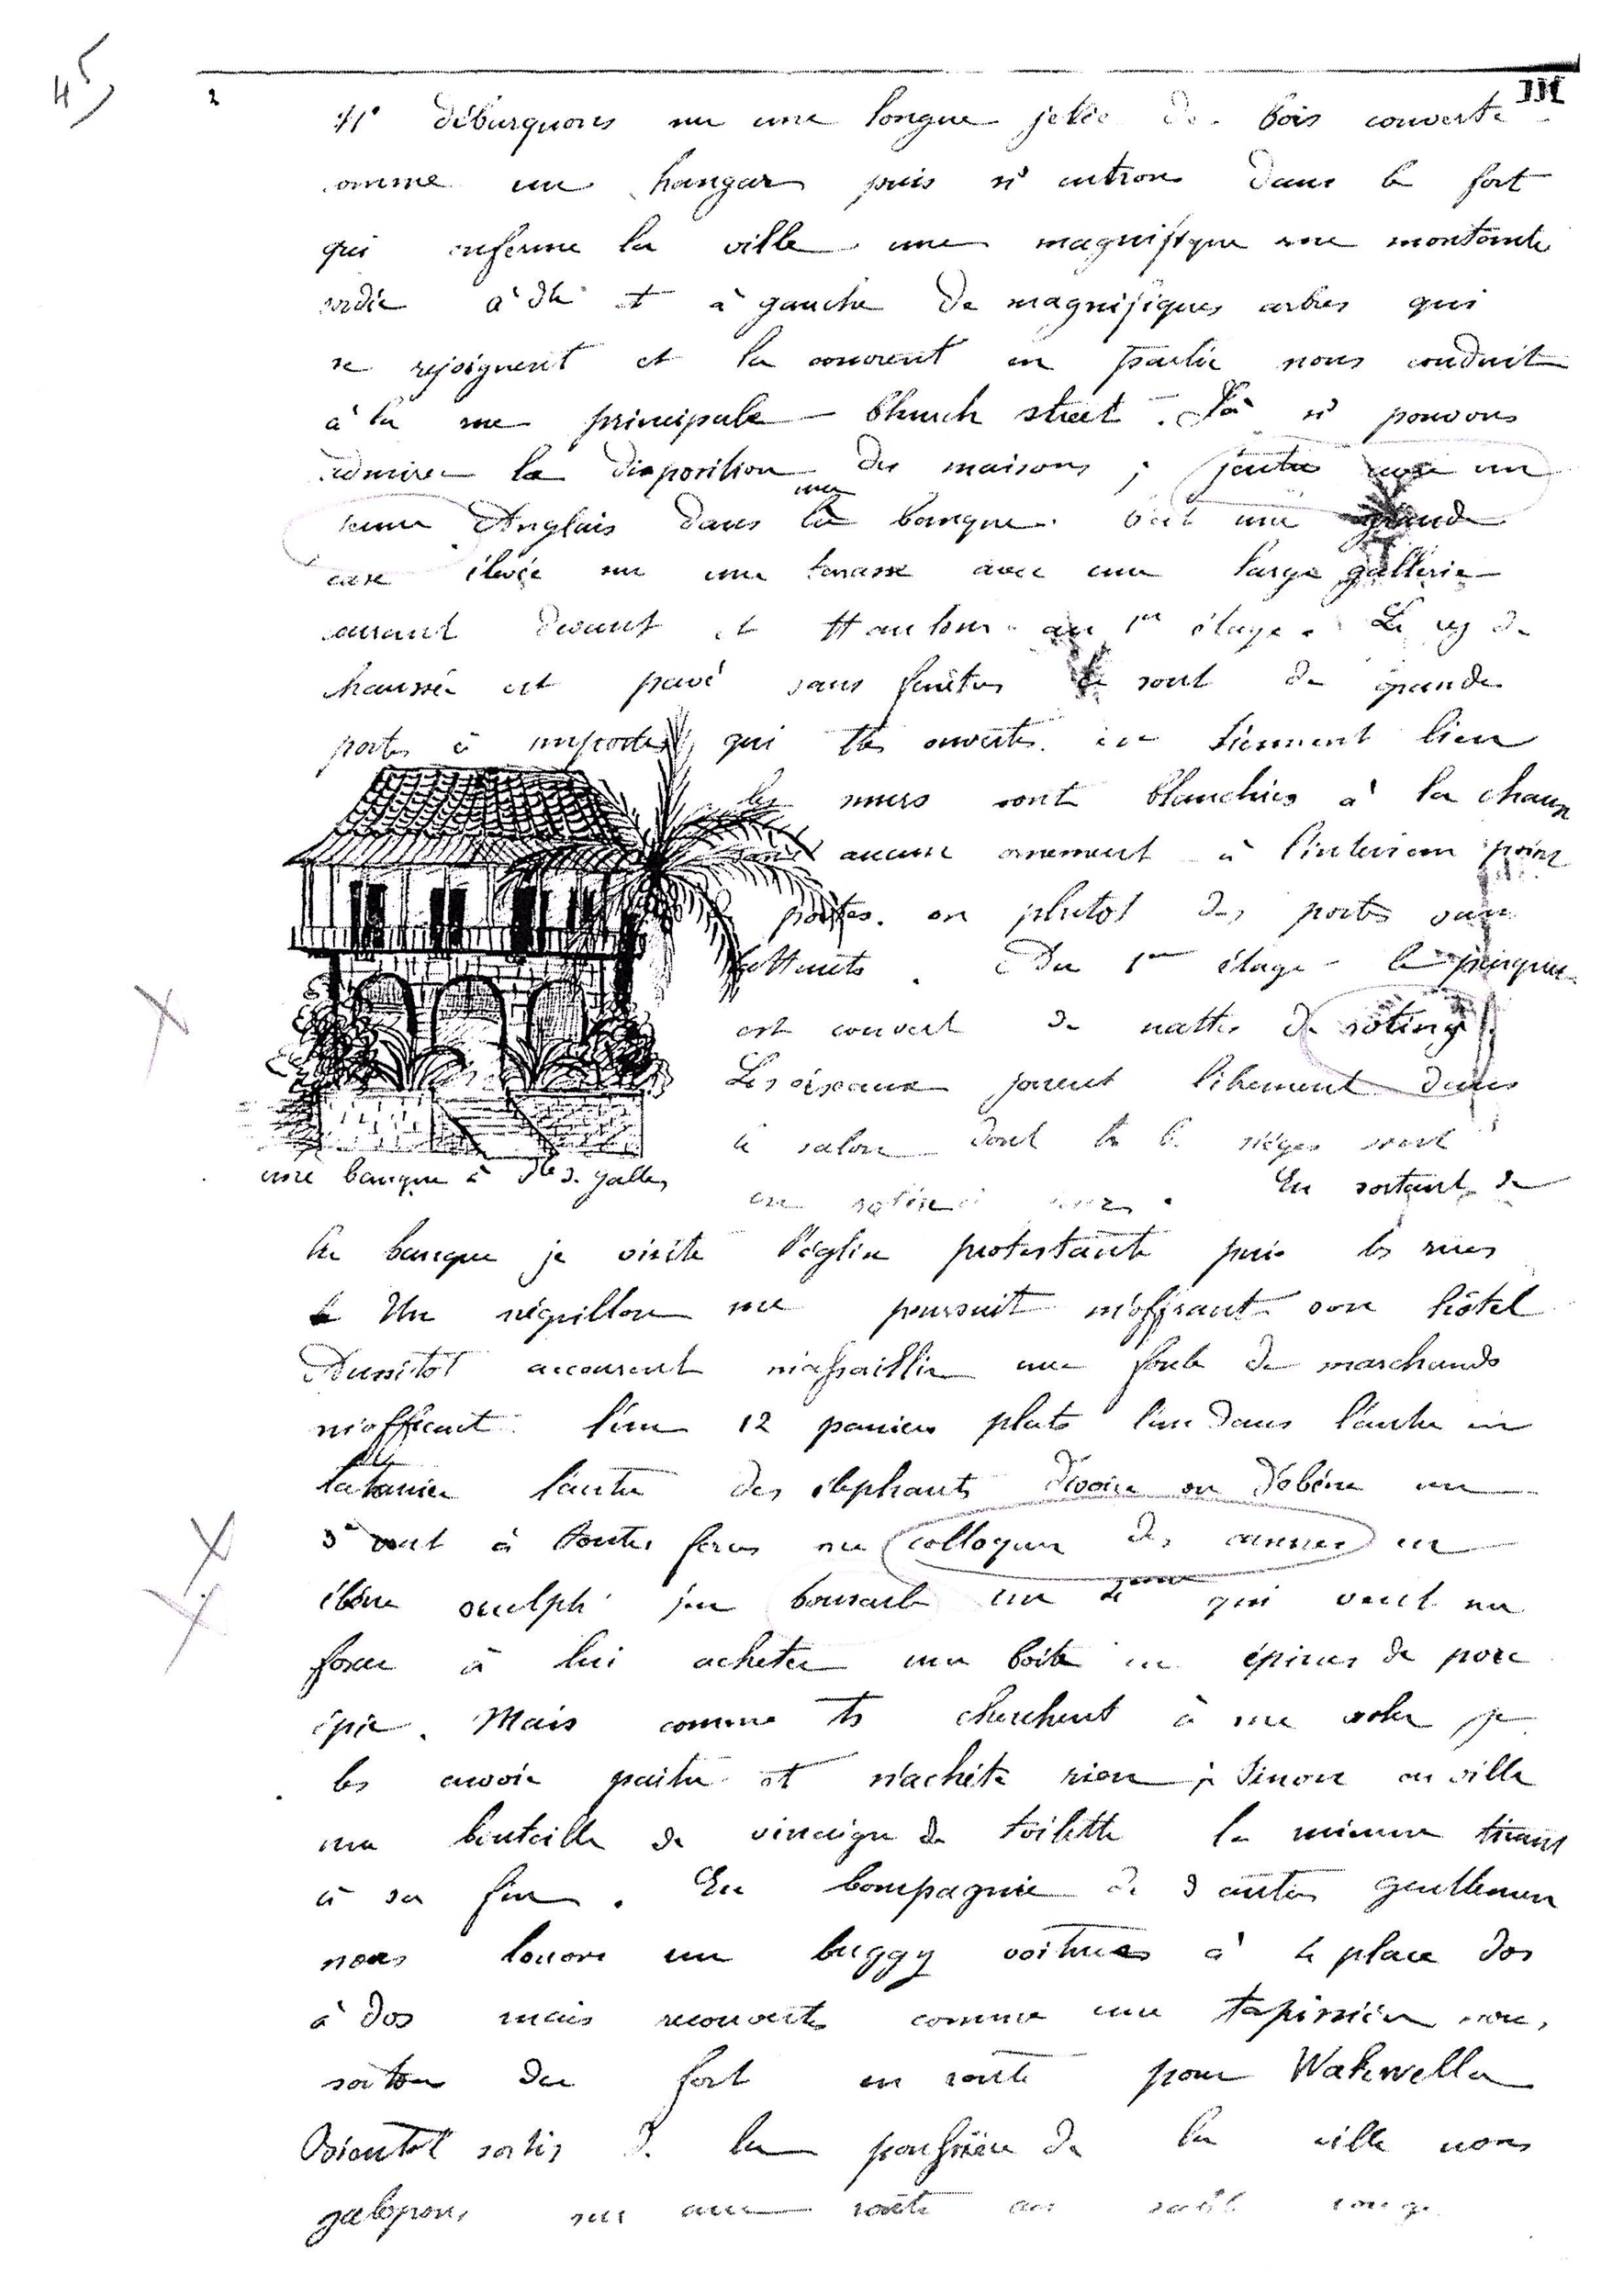 45
2
III
ns débarquons sur une longue jetée de bois couverte
comme un hangar puis ns entrons dans le fort
qui enferme la ville une magnifique rue montante
bordée à dte et à gauche de magnifiques arbres qui
se rejoignent et la couvrent en partie nous conduit
à la rue principale Church street. Là ns pouvons
admirer la disposition des maisons ; j'entre avec un
jeune Anglais dans la une banque. C'est une grande
case élevée sur une terrasse avec une large gallerie
courant devant et tt autour au 1er étage. Le rez de
chaussée est pavé sans fenêtres ce sont de grandes
portes qui ttes ouvertes en tiennent lieu
les murs sont blanchies à la chaux
sans aucun ornement à l'intérieur point
portes. ou plutot des portes sans
battants. Du 1er étage le
est couvert de nattes de roting
Les oiseaux jouent librement dans
le salon dont les sièges sont
en
une banque à Pte d. Galles
En sortant de
la banque je visite l'église protestante puis les rues
Un négrillon me poursuit m'offrant son hôtel
Aussitôt accourent m'assaillir une foule de marchands
m'offrent l'un 12 paniers plats l'un dans l'autre en
latanier l'autre des éléphants d'ivoire ou d'ébène un
3e veut à toutes forces me colloquer des cannes en
ébène sculpté j'en bouscule un 4eme qui veut me
forcer à lui acheter une boîte en épines de porc
épic. Mais comme ts cherchent à me voler je
les envoie paître et n'achète rien, sinon en ville
une bouteille de vinaigre de toilette la mienne tirant
à sa fin. En compagnie de 3 autres gentlemen
nous louons un buggy voitures à 4 places dos
à dos mais recouvertes comme une tapissière
sortons du fort en route pour Wakwella
Bientôt sortis de la poussière de la ville nous
galopons sur une route au sable rouge